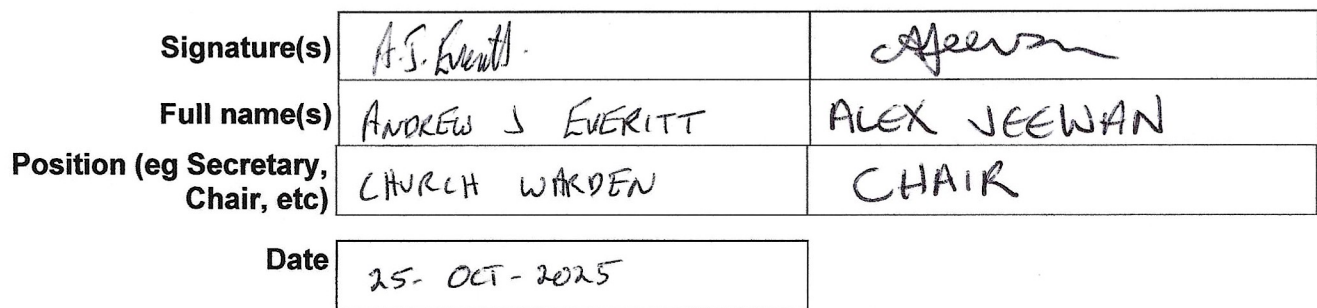 Signature(s) A.J. Everitt.
Full name(s) ANDREW J EVERITT ALEX JEEWAN
Position (eg Secretary, CHURCH WARDEN CHAIR
Chair, etc)
Date 25-OCT-2025